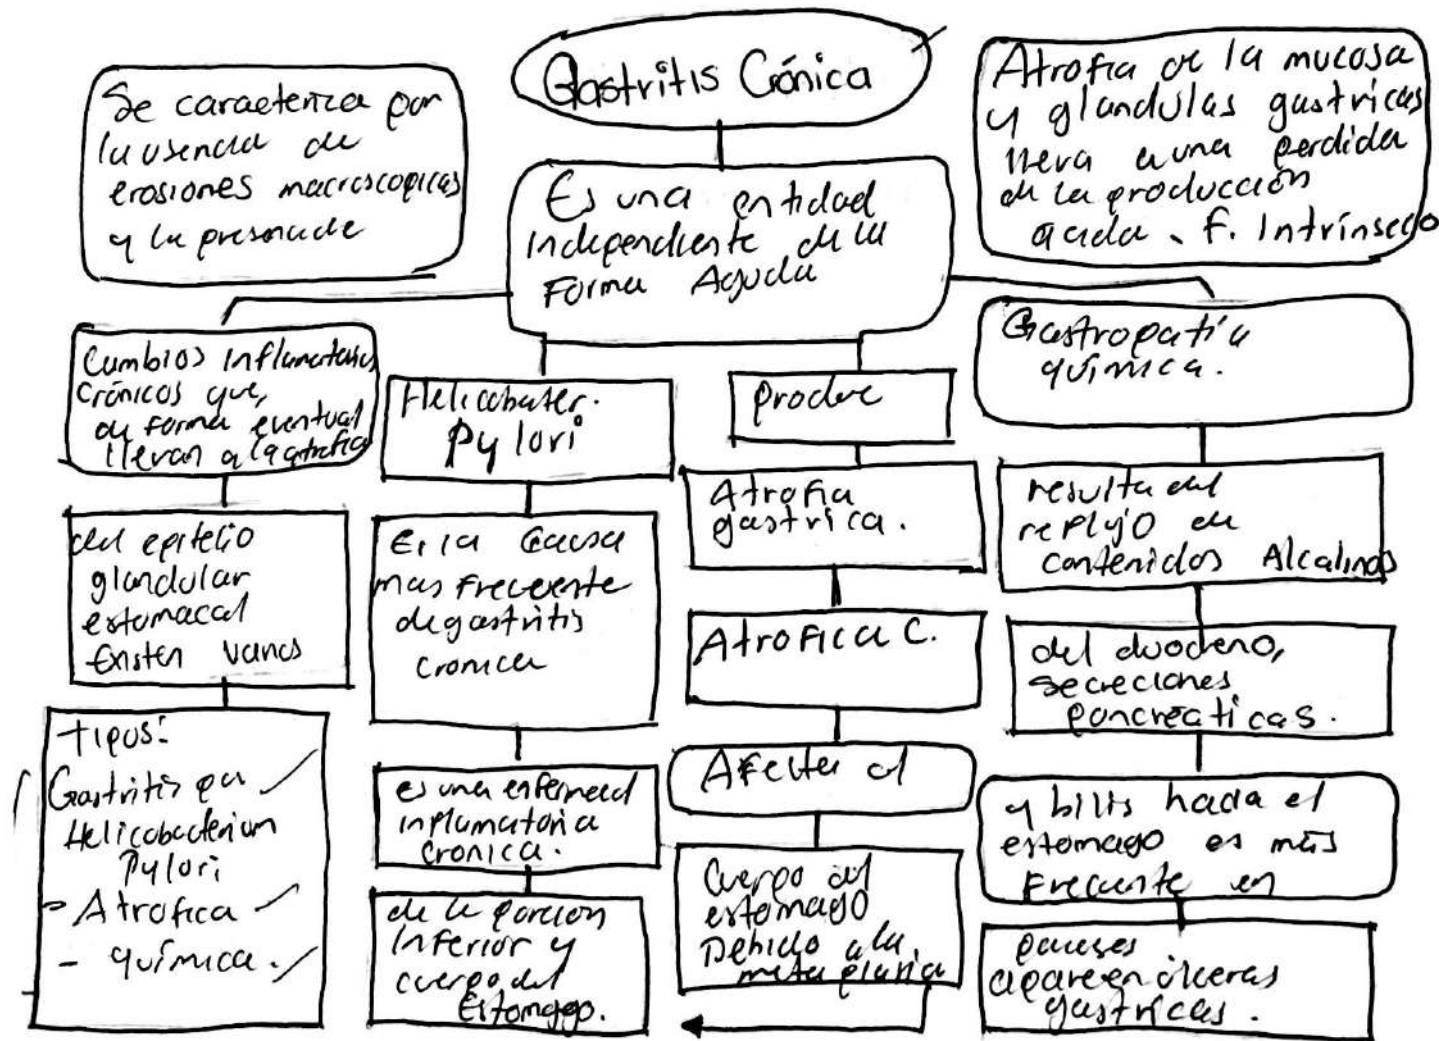 Gastritis Crónica
Se caracteriza por
la usencia de
erosiones macroscopicas
y la presencia de
Es una entidad
independiente de la
Forma Aguda
Atrofia de la mucosa
y glandulas gastricas
lleva a una perdida
de la producción
acida. F. Intrínseco
Cambios inflamatorios
Crónicos que,
de forma eventual
llevan a la atrofia
del epitelio
glandular
estomacal
Existen varios
tipos:
Gastritis por
Helicobacterium
Pylori
- Atrofica
- química.
Helicobater.
Pylori
Es la Causa
mas Frecuente
de gastritis
cronica
es una enfermedad
inflamatoria
cronica.
de la porcion
Inferior y
cuerpo del
Estomago.
produce
Atrofia
gastrica.
Atrofica C.
Afecta el
Cuerpo del
estomago
Debido a la
metaplasia
Gastropatia
química.
resulta del
reflujo de
contenidos Alcalinos
del duodeno,
secreciones
pancreaticas.
y bilis hacia el
estomago es más
Frecuente en
aparecen úlceras
gastricas.